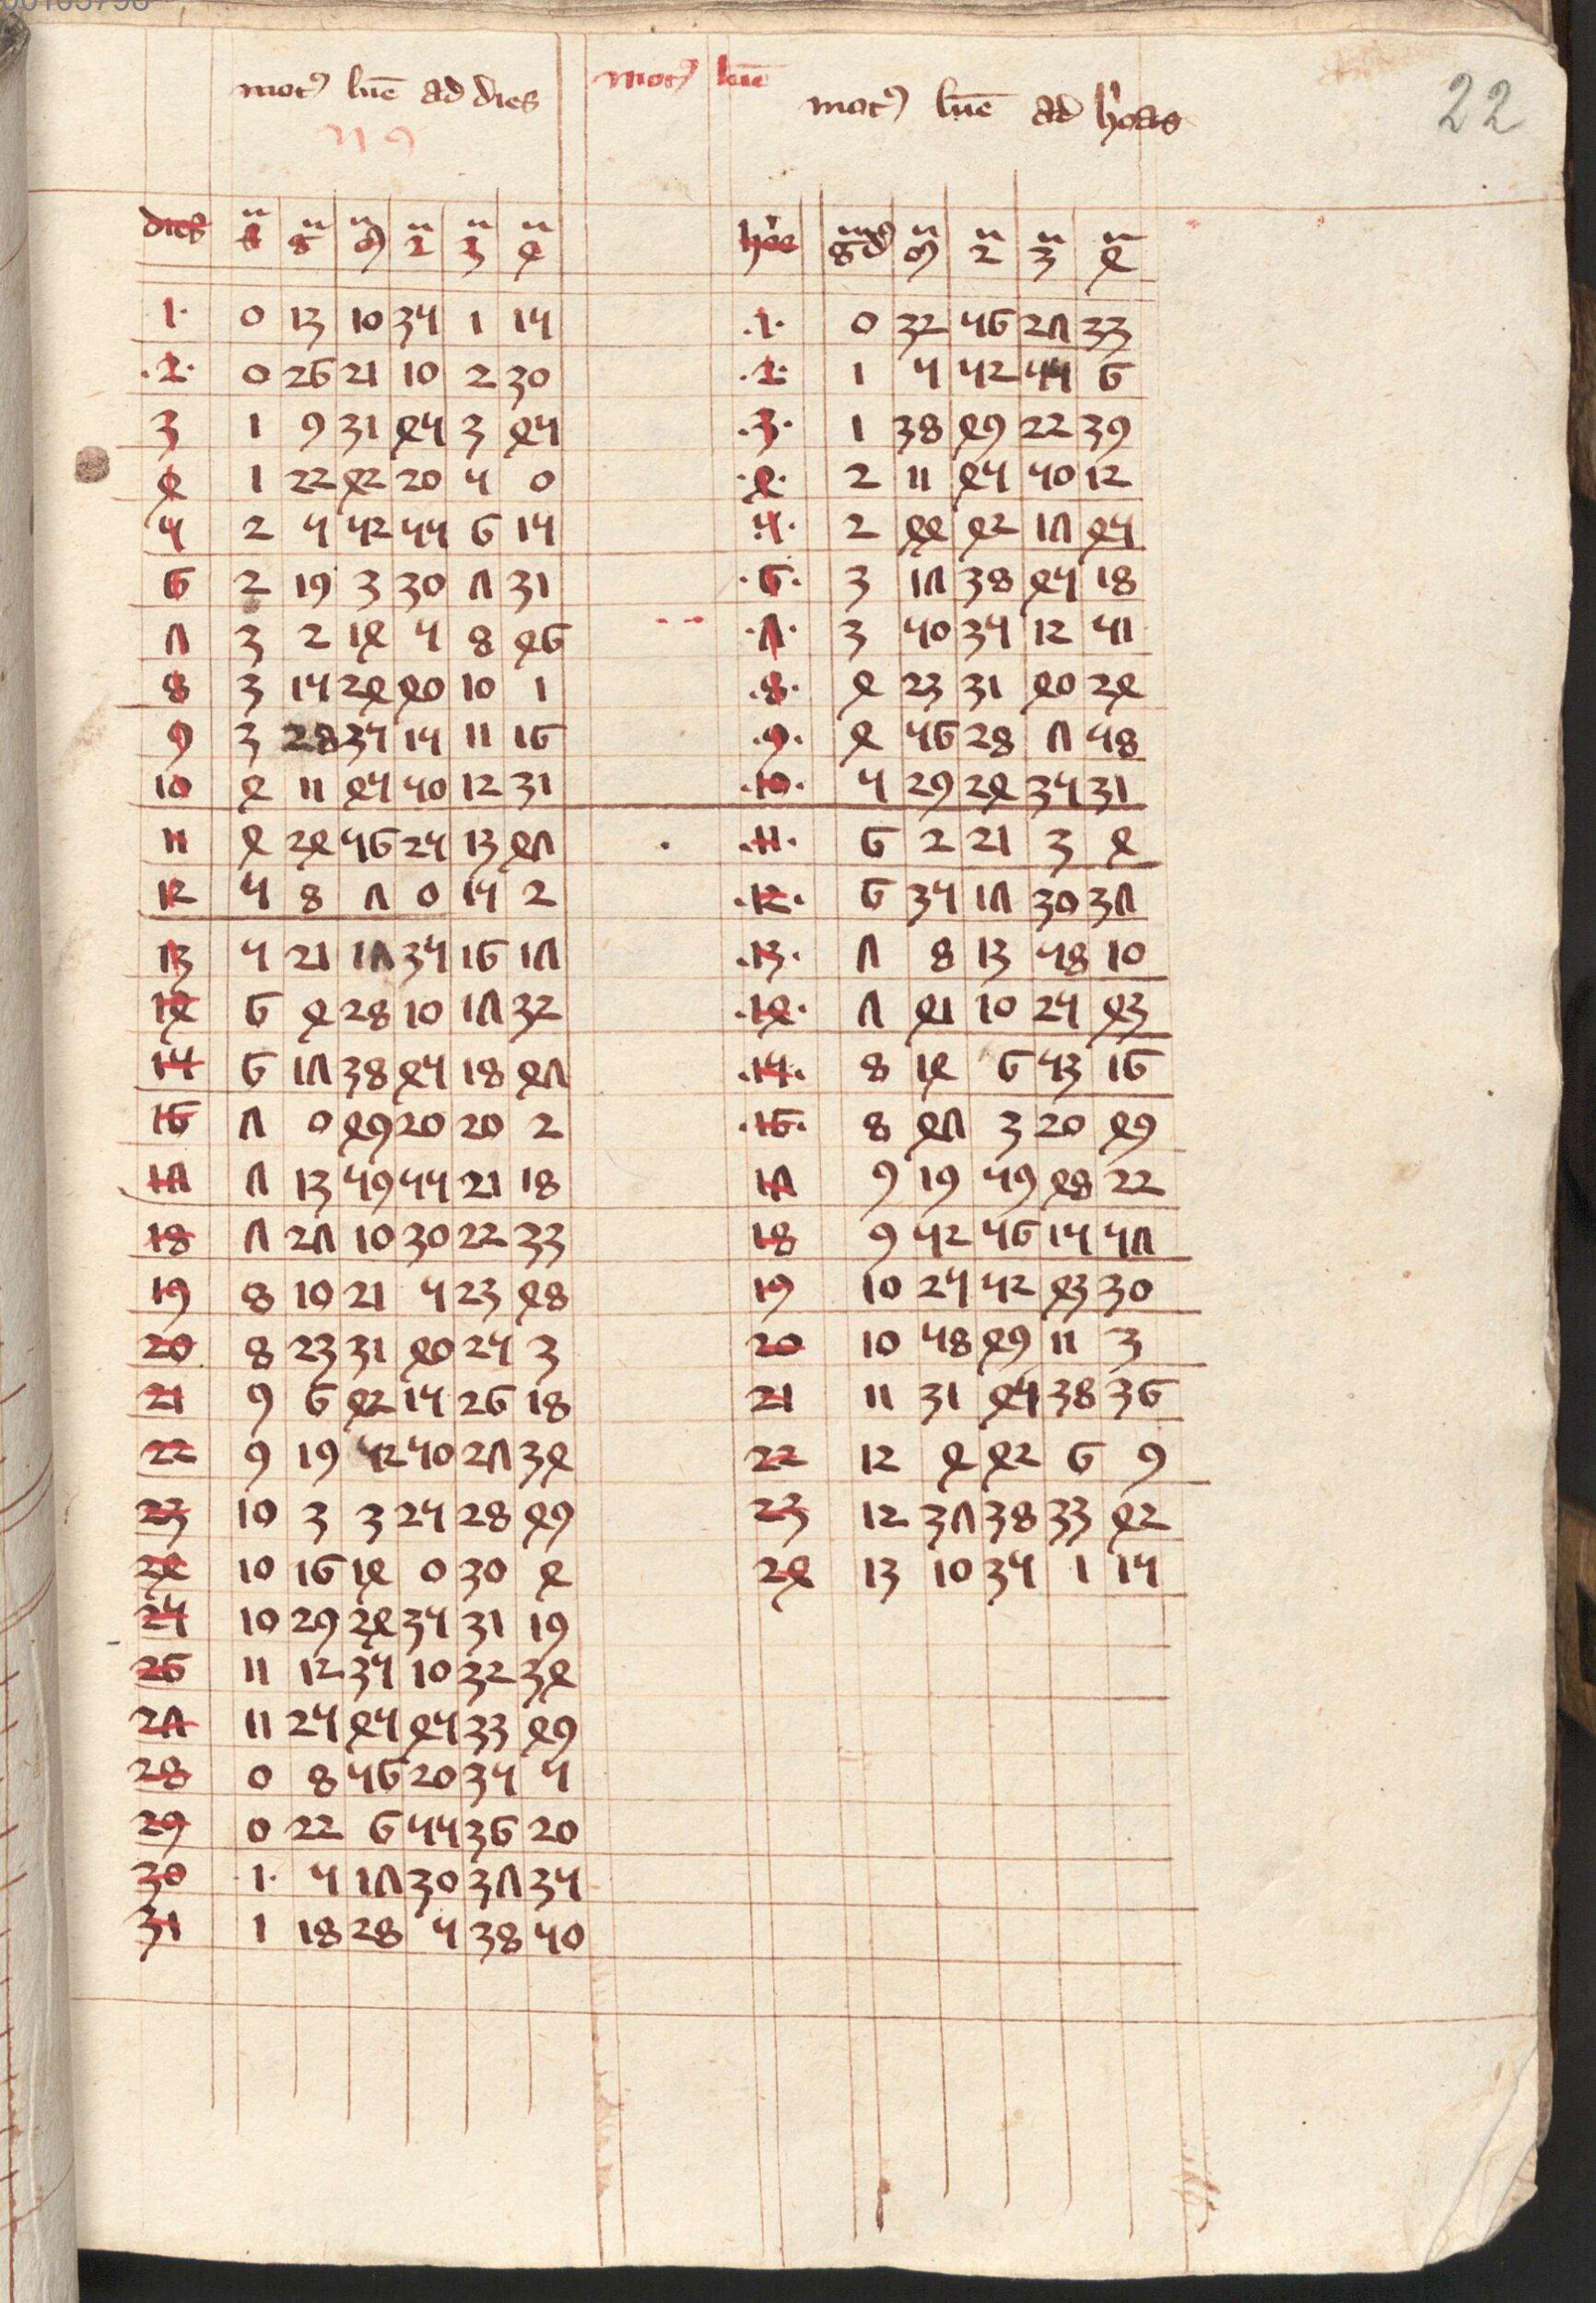 22
motꝰ lūe ad dies
dies s g m 2 3 4
1 0 13 10 35 1 15
2 0 26 21 10 2 30
3 1 9 31 45 3 45
4 1 22 42 20 5 0
5 2 5 52 55 6 15
6 2 19 3 30 7 31
7 3 2 14 5 8 46
8 3 15 24 40 10 1
9 3 28 35 15 11 16
10 4 11 45 50 12 31
11 4 24 56 25 13 47
12 5 8 7 0 15 2
13 5 21 17 35 16 17
14 6 4 28 10 17 32
15 6 17 38 45 18 47
16 7 0 49 20 20 2
17 7 13 59 55 21 18
18 7 27 10 30 22 33
19 8 10 21 5 23 48
20 8 23 31 40 25 3
21 9 6 42 15 26 18
22 9 19 52 50 27 34
23 10 3 3 25 28 49
24 10 16 14 0 30 4
25 10 29 24 35 31 19
26 11 12 35 10 32 34
27 11 25 45 45 33 49
28 0 8 56 20 35 5
29 0 22 6 55 36 20
30 1 5 17 30 37 35
31 1 18 28 5 38 50
motꝰ lūe
motꝰ lūe ad horas
hore gd m 2 3 4
1 0 32 56 27 33
2 1 5 52 55 6
3 1 38 49 22 39
4 2 11 45 50 12
5 2 44 42 17 45
6 3 17 38 45 18
7 3 50 35 12 51
8 4 23 31 40 24
9 4 56 28 7 58
10 5 29 24 35 31
11 6 2 21 3 4
12 6 35 17 30 37
13 7 8 13 58 10
14 7 41 10 25 43
15 8 14 6 53 16
16 8 47 3 20 49
17 9 19 59 48 22
18 9 52 56 15 57
19 10 25 52 43 30
20 10 58 49 11 3
21 11 31 45 38 36
22 12 4 42 6 9
23 12 37 38 33 42
24 13 10 35 1 15